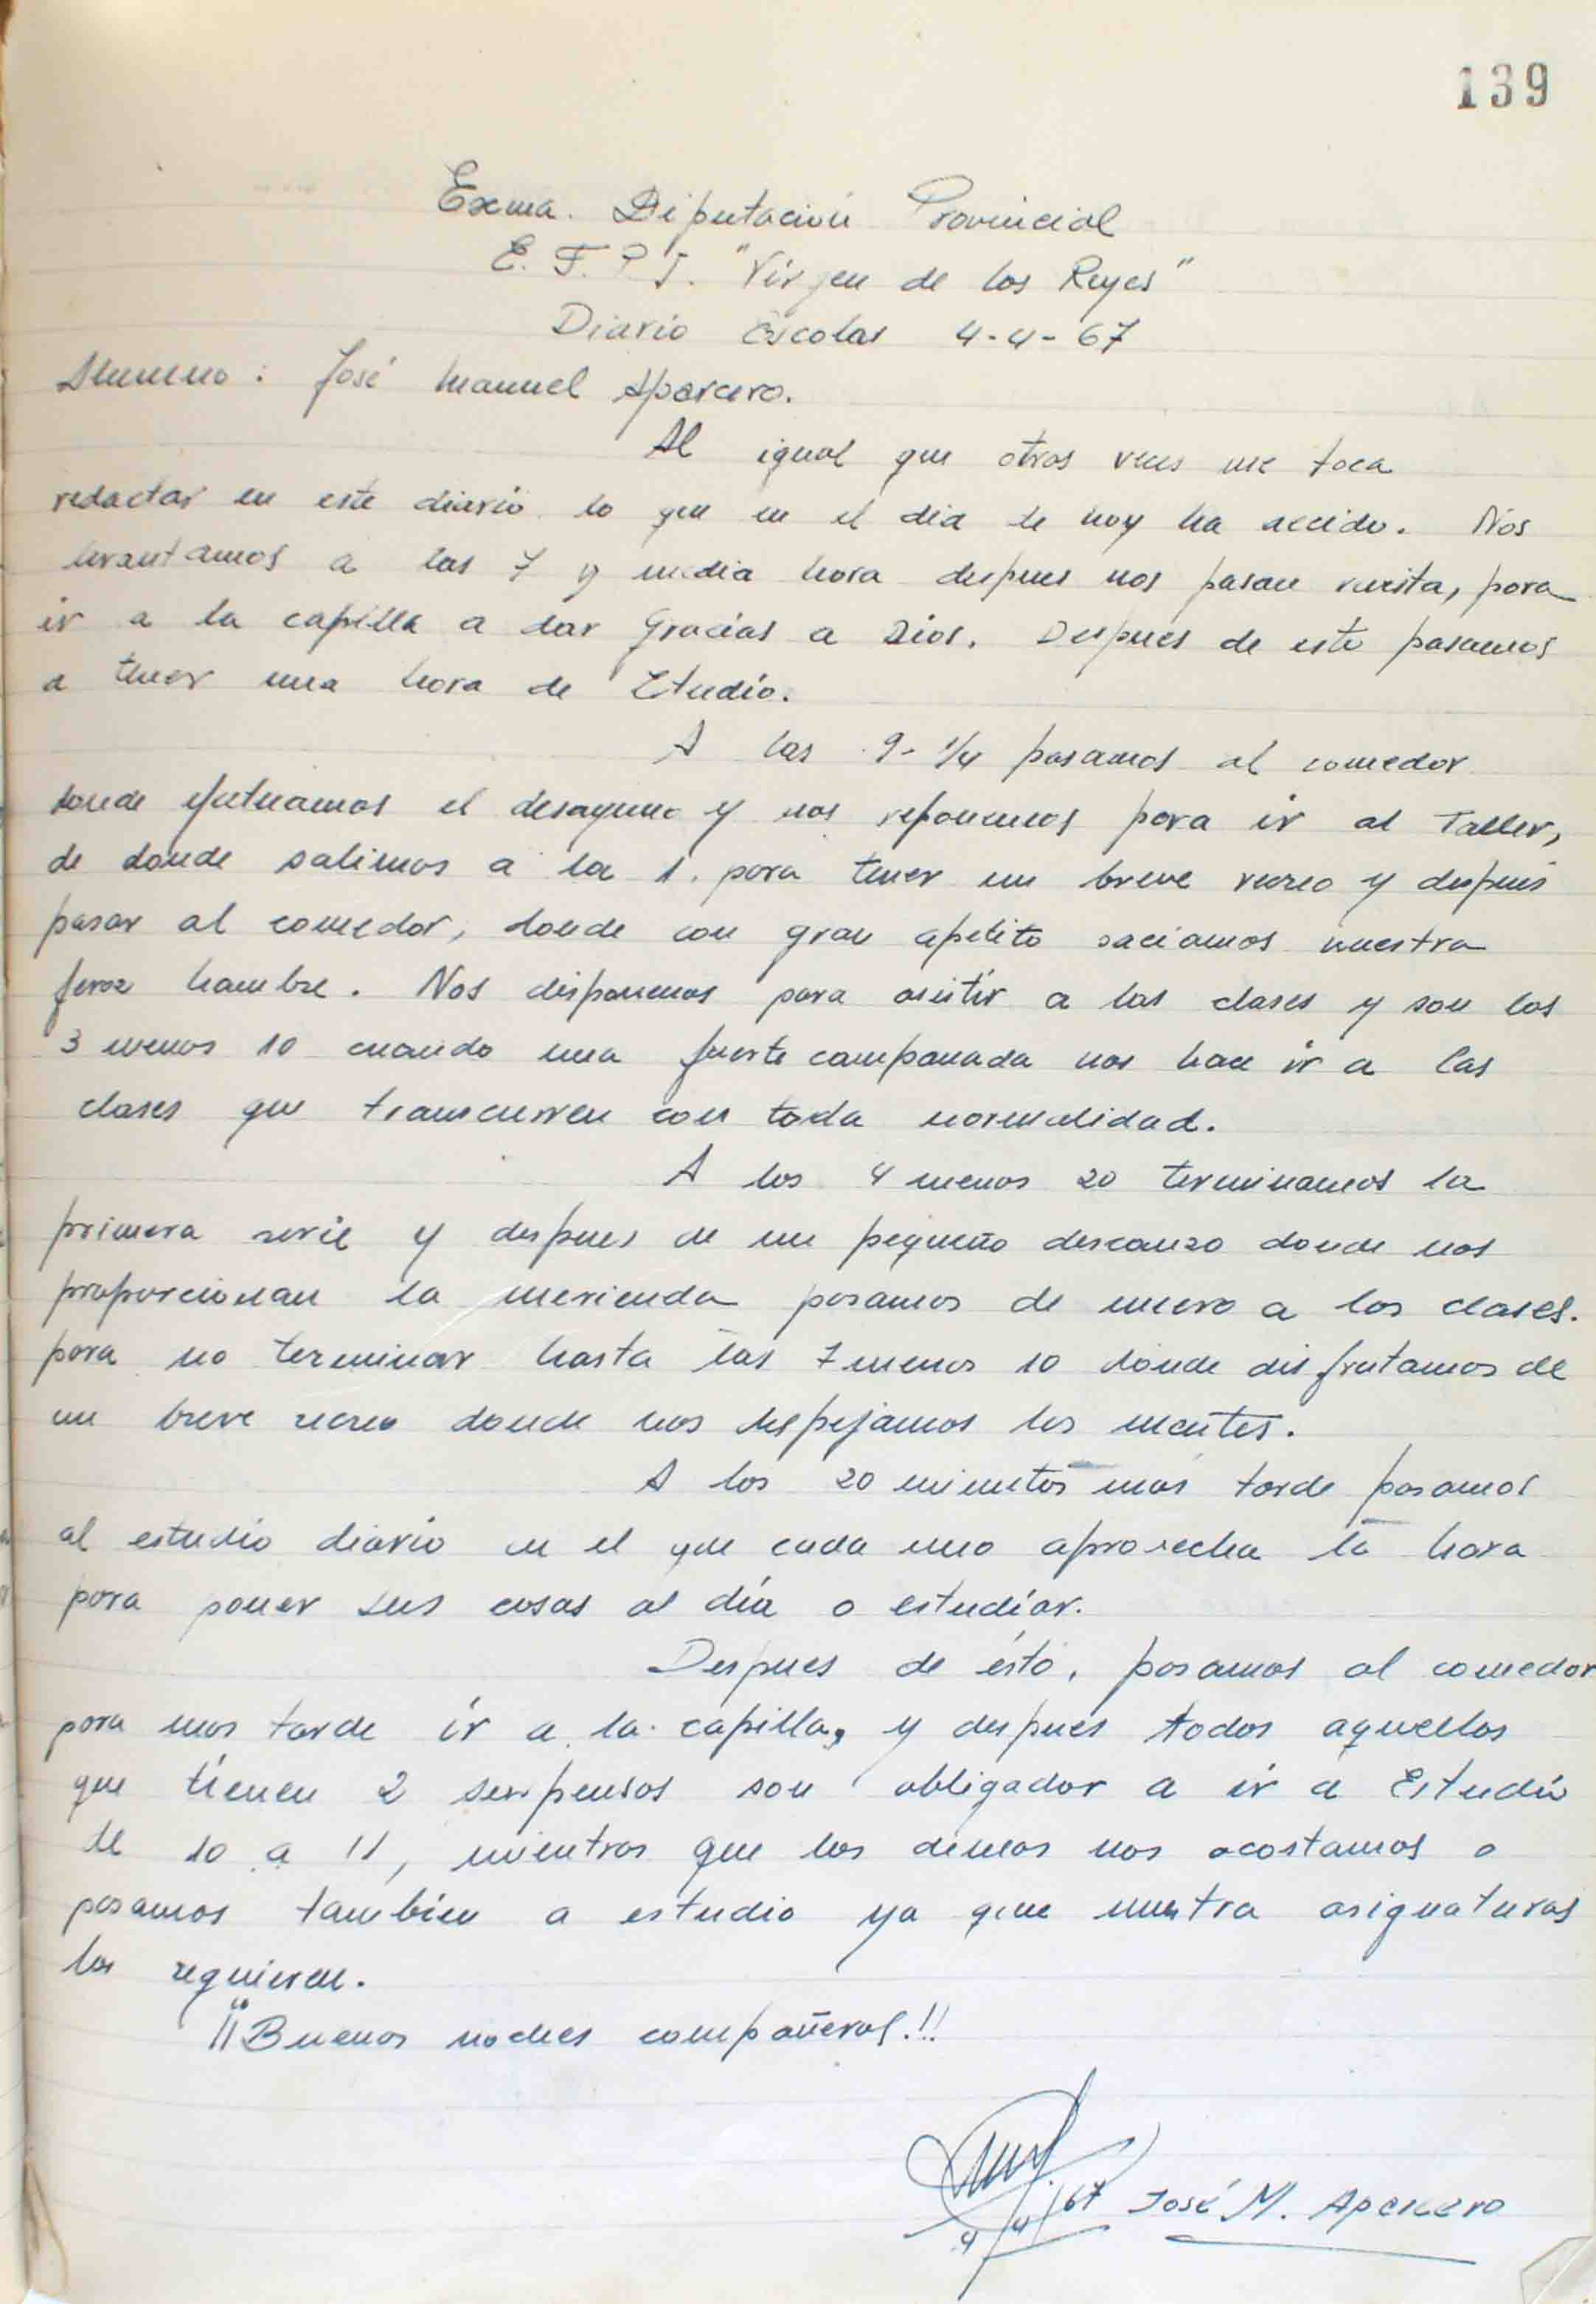 139
Exma. Diputación Provincial
E. F. P. I. "Virgen de los Reyes"
Diario Escolar 4-4-67
Alumno: José Manuel Aparcero.
Al igual que otras veces me toca
redactar en este diario lo que en el dia de hoy ha accido. Nos
levantamos a las 7 y media hora despues nos pasan revista, para
ir a la capilla a dar Gracias a Dios. Despues de esto pasamos
a tener una hora de Etudio.
A las 9-1/4 pasamos al comedor
donde efectuamos el desayuno y nos reponemos para ir al Taller,
de donde salimos a la 1. para tener un breve recreo y después
pasar al comedor, donde con gran apetito saciamos nuestra
feroz hambre. Nos disponemos para asistir a las clases y son las
3 menos 10 cuando una fuerte campanada nos hace ir a las
clases que transcurren con toda normalidad.
A las 4 menos 20 terminamos la
primera serie y despues de un pequeño descanzo donde nos
proporcionan la merienda pasamos de nuevo a las clases.
para no terminar hasta las 7 menos 10 donde disfrutamos de
un breve recreo donde nos despejamos las mentes.
A los 20 minutos mas tarde pasamos
al estudio diario en el que cada uno aprovecha la hora
para poner sus cosas al día o estudiar.
Despues de ésto, pasamos al comedor
para mas tarde ir a la capilla, y despues todos aquellos
que tienen 2 suspensos son obligador a ir a Estudio
de 10 a 11, mientras que los demas nos acostamos o
pasamos tambien a estudio ya que nuestra asignaturas
los requieren.
¡¡Buenas noches compañeros.!!
4/4/67 José M. Aparcero